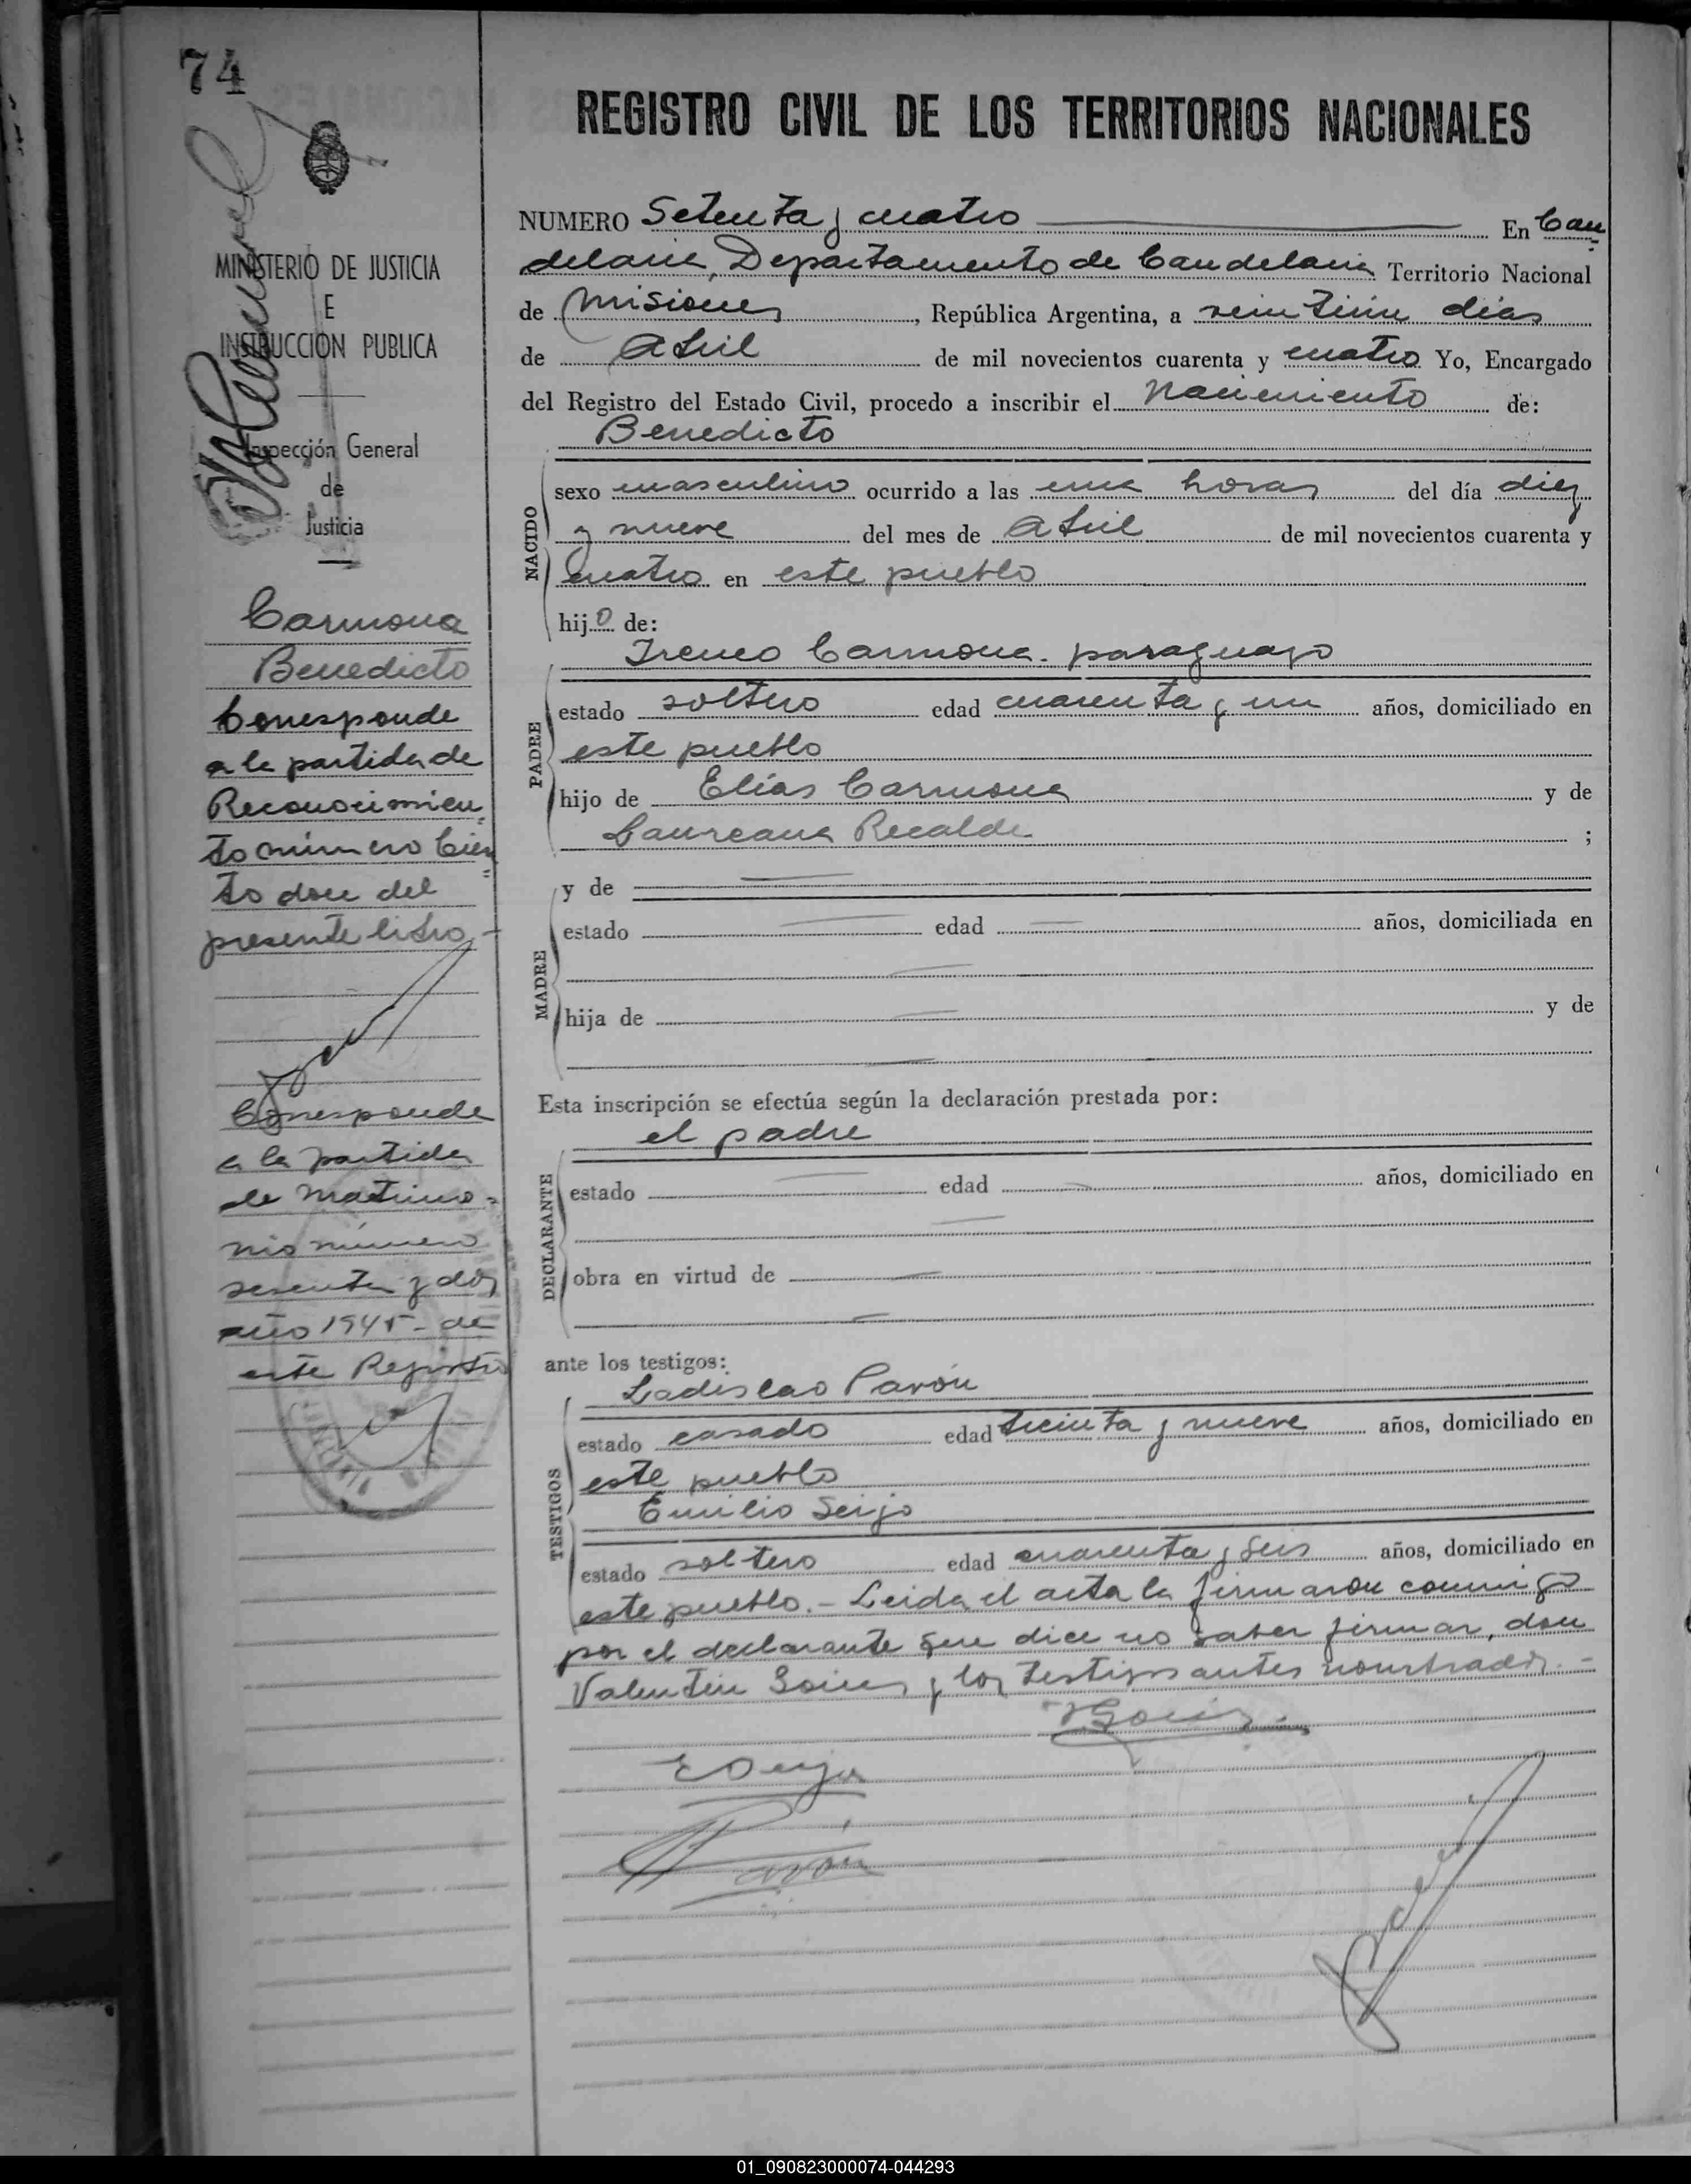 74
REGISTRO CIVIL DE LOS TERRITORIOS NACIONALES
MINISTERIO DE JUSTICIA
E
INSTRUCCION PUBLICA
Inspección General
de
Justicia
Carmona
Benedicto
Corresponde
a la partida de
Reconocimien=
to número Cien=
to doce del
presente libro.-
Corresponde
a la partida
de matrimo=
nio número
sesenta y dos
año 1945 - de
este Registro
NUMERO Setenta y cuatro En Can=
delaria, Departamento de Candelaria Territorio Nacional
de Misiones, República Argentina, a veintiún días
de Abril de mil novecientos cuarenta y cuatro Yo, Encargado
del Registro del Estado Civil, procedo a inscribir el Nacimiento de:
Benedicto
NACIDO
sexo masculino ocurrido a las una horas del día diez
y nueve del mes de Abril de mil novecientos cuarenta y
cuatro en este pueblo
hijo de:
PADRE
Ireneo Carmona. paraguayo
estado soltero edad cuarenta y un años, domiciliado en
este pueblo
hijo de Elías Carmona y de
Laureana Recalde ;
MADRE
y de
estado edad años, domiciliada en
hija de y de
Esta inscripción se efectúa según la declaración prestada por:
el padre
DECLARANTE
estado edad años, domiciliado en
obra en virtud de
ante los testigos:
TESTIGOS
Ladislao Pavón
estado casado edad treinta y nueve años, domiciliado en
este pueblo
Emilio Seijo
estado soltero edad cuarenta y seis años, domiciliado en
este pueblo.- Leida el acta la firmaron conmigo
por el declarante que dice no saber firmar, don
Valentín y los testigos antes nombrados.-
Pavón
01_090823000074-044293